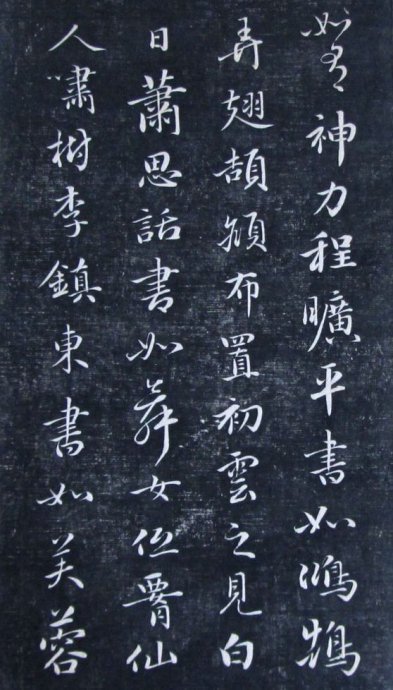 如有神力程曠平書如鴻鵠
弄翅頡頏布置初雲之見白
日蕭思話書如舞女低腰仙
人嘯樹李鎮東書如芙蓉